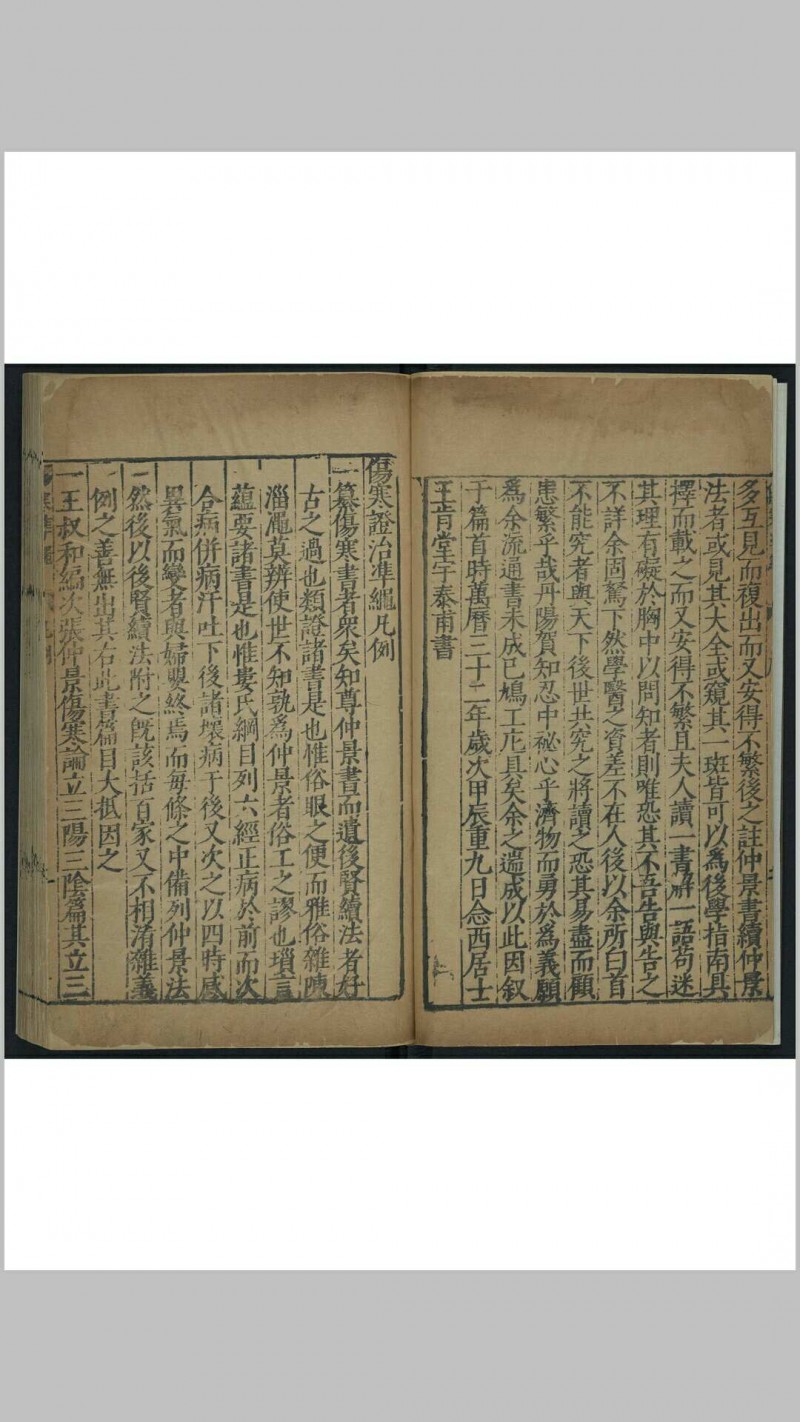 多互見而複出而又安得不繁後之註仲景書續仲景
法者或見其大全或窺其一斑皆可以為後學指南具
擇而載之而又安得不繁且夫人讀一書解一語苟迷
其理有礙於胸中以問知者則唯恐其不吾告與告之
不詳余固駑下然學醫之資差不在人後以余所白首
不能究者與天下後世共究之將讀之恐其易盡而顧
患繁乎哉丹陽賀知忍中祕心乎濟物而勇於為義願
為余流通書未成已鳩工庀具矣余之遄成以此因叙
于篇首時萬曆三十二年歲次甲辰重九日念西居士
王肯堂宇泰甫書
傷寒證治準繩凡例
一纂傷寒書者衆矣知尊仲景書而遺後賢續法者好
古之過也類證諸書是也惟俗眼之便而雅俗雜陳
淄澠莫辨使世不知孰為仲景者俗工之謬也瑣言
蘊要諸書是也惟婁氏綱目列六經正病於前而次
合病併病汗吐下後諸壞病于後又次之以四時感
異氣而變者與婦嬰終焉而每條之中備列仲景法
然後以後賢續法附之既該括百家又不相淆雜義
例之善無出其右此書篇目大抵因之
一王叔和編次張仲景傷寒論立三陽三陰篇其立三